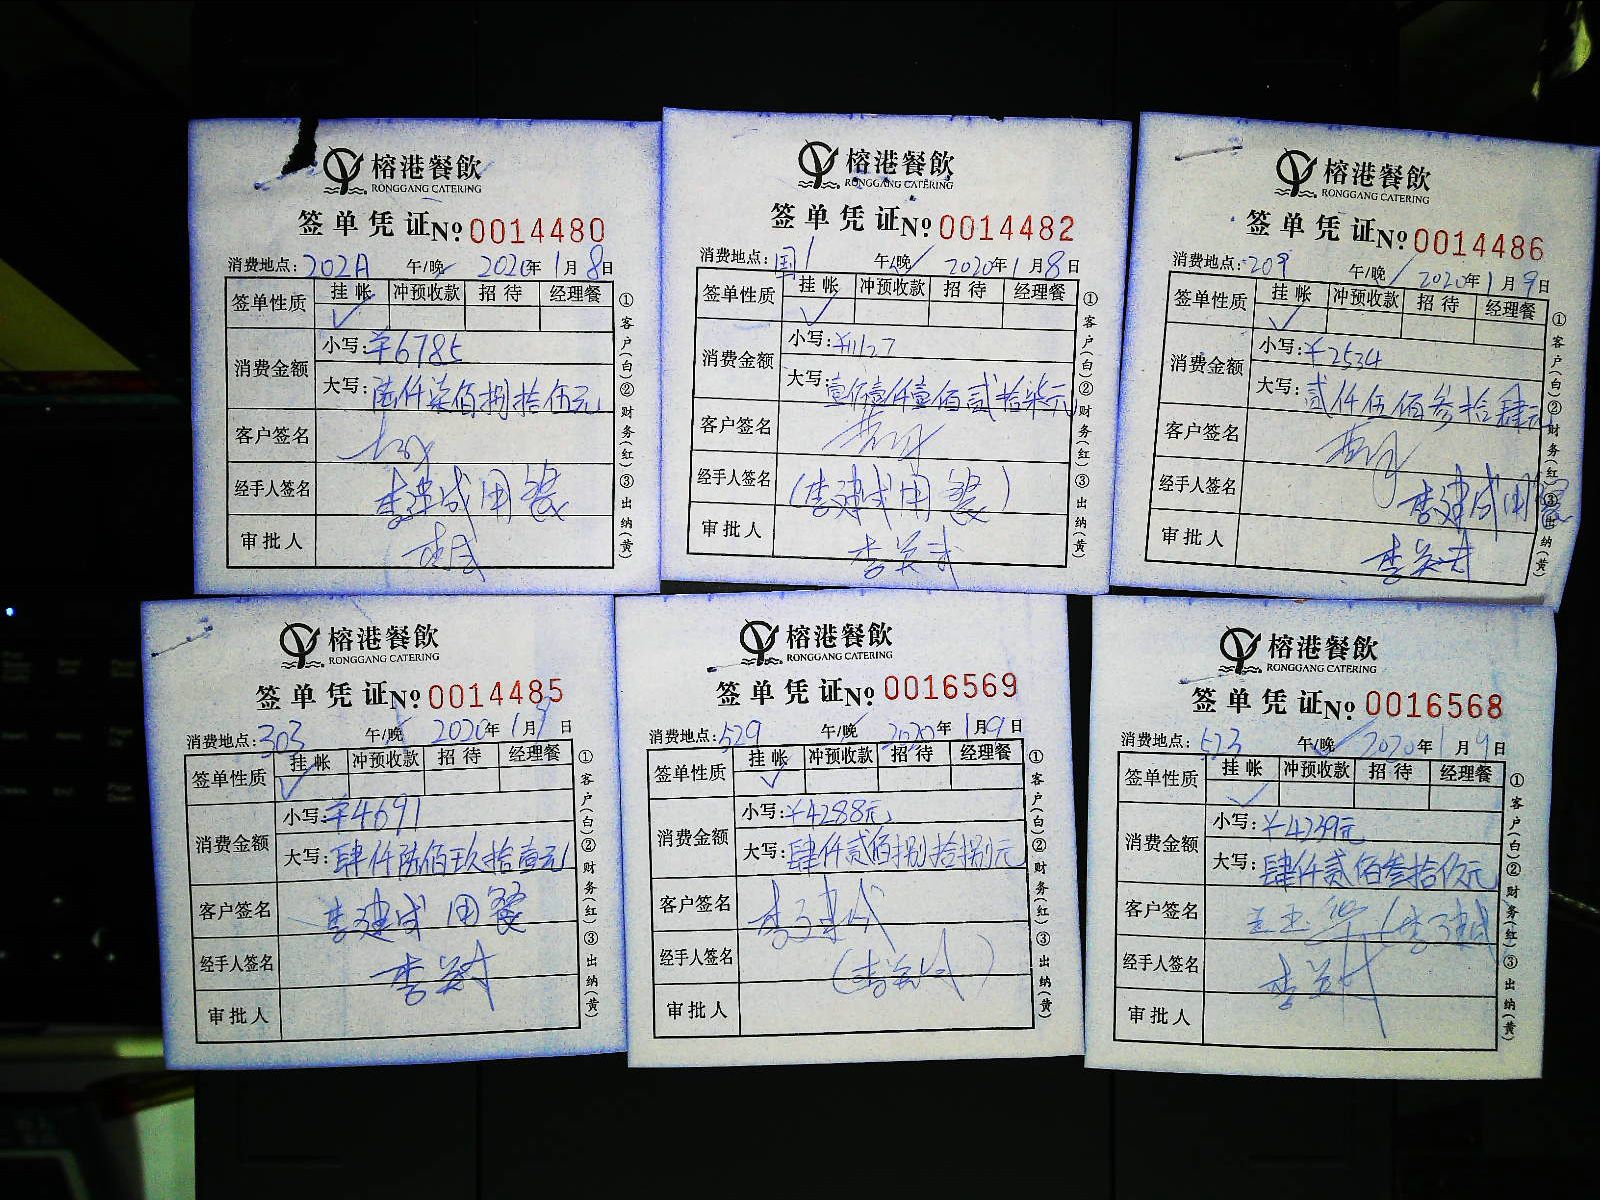 榕港餐飲
RONGGANG CATERING
签单凭证№ 0014480
消费地点: 202A 午/晚 2020年1月8日
签单性质 挂帐 冲预收款 招待 经理餐
消费金额 小写: ¥6785
大写: 陆仟柒佰捌拾伍元
客户签名
经手人签名 李建成用餐
审批人
①客户(白)②财务(红)③出纳(黄)
榕港餐飲
RONGGANG CATERING
签单凭证№ 0014482
消费地点: 1 午/晚 2020年1月8日
签单性质 挂帐 冲预收款 招待 经理餐
消费金额 小写: ¥11127
大写: 壹仟壹佰贰拾柒元
客户签名
经手人签名 (李建成用餐)
审批人 李英武
①客户(白)②财务(红)③出纳(黄)
榕港餐飲
RONGGANG CATERING
签单凭证№ 0014486
消费地点: 209 午/晚 2020年1月9日
签单性质 挂帐 冲预收款 招待 经理餐
消费金额 小写: ¥2534
大写: 贰仟伍佰参拾肆元
客户签名
经手人签名 李建成用餐
审批人 李英武
①客户(白)②财务(红)③出纳(黄)
榕港餐飲
RONGGANG CATERING
签单凭证№ 0014485
消费地点: 303 午/晚 2020年1月9日
签单性质 挂帐 冲预收款 招待 经理餐
消费金额 小写: ¥4691
大写: 肆仟陆佰玖拾壹元
客户签名 李建成用餐
经手人签名 李英武
审批人
①客户(白)②财务(红)③出纳(黄)
榕港餐飲
RONGGANG CATERING
签单凭证№ 0016569
消费地点: 529 午/晚 2020年1月9日
签单性质 挂帐 冲预收款 招待 经理餐
消费金额 小写: ¥4288元
大写: 肆仟贰佰捌拾捌元
客户签名 李建成
经手人签名 (李英武)
审批人
①客户(白)②财务(红)③出纳(黄)
榕港餐飲
RONGGANG CATERING
签单凭证№ 0016568
消费地点: 523 午/晚 2020年1月9日
签单性质 挂帐 冲预收款 招待 经理餐
消费金额 小写: ¥4239元
大写: 肆仟贰佰叁拾玖元
客户签名 (李建成
经手人签名 李英武
审批人
①客户(白)②财务(红)③出纳(黄)